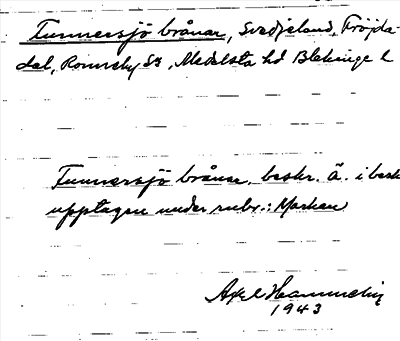 Tunnersjö brånar, Svedjeland, Fröjda-
dal, Ronneby Sn, Medelsta hd Blekinge l
Tunnersjö brånar. beskr. Ä. i besk
upptagen under rubr.: Markan
Axel Hammelin
1943